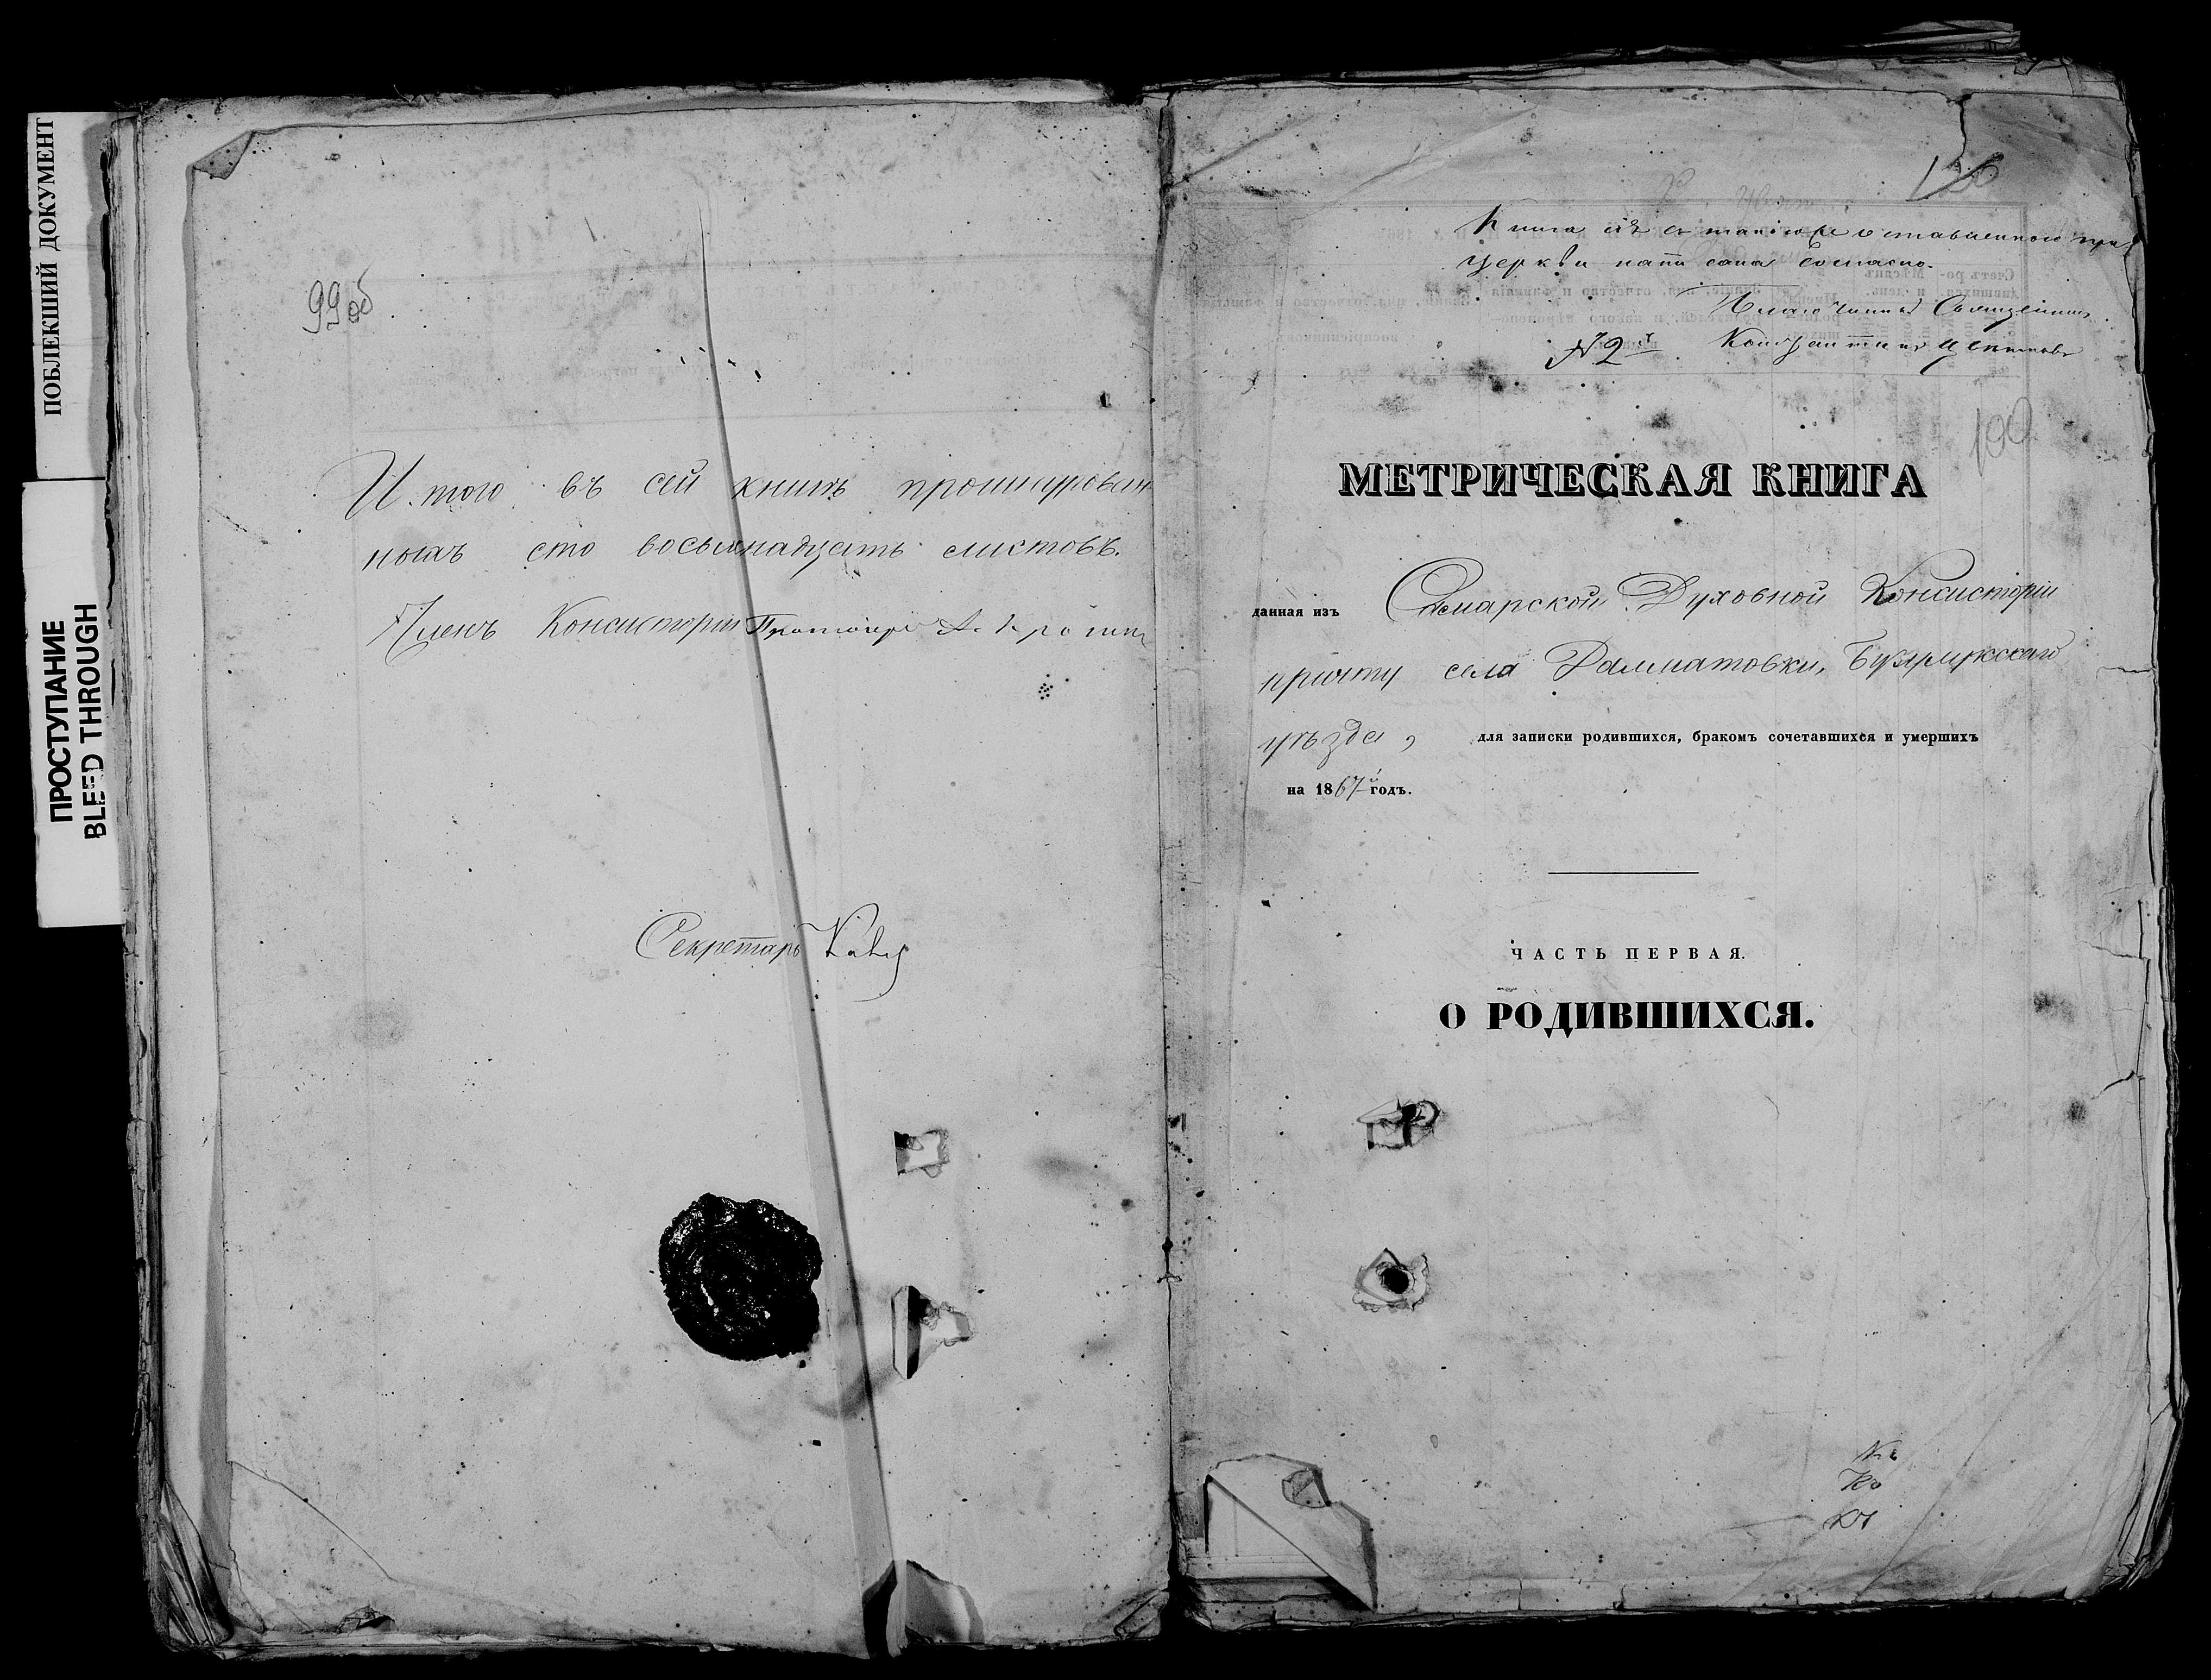 ПОБЛЕКШИЙ ДОКУМЕНТ
ПРОСТУПАНИЕ
BLEED THROUGH
99 об
И того въ сей книгѣ прошнурован
ныхъ сто восьмнадцать листовъ.
Членъ Консисторіи Протоіерей
Секретарь
Книга сія съ таковою оставленною при
церкви
согласно.
Благочинный Священникъ
№ 2й Константинъ
100
МЕТРИЧЕСКАЯ КНИГА
данная изъ Самарской Духовной Консисторіи
причту села Далматовки, Бузулукскаго
уѣзда, для записки родившихся, бракомъ сочетавшихся и умершихъ
на 1867й годъ.
ЧАСТЬ ПЕРВАЯ.
О РОДИВШИХСЯ.